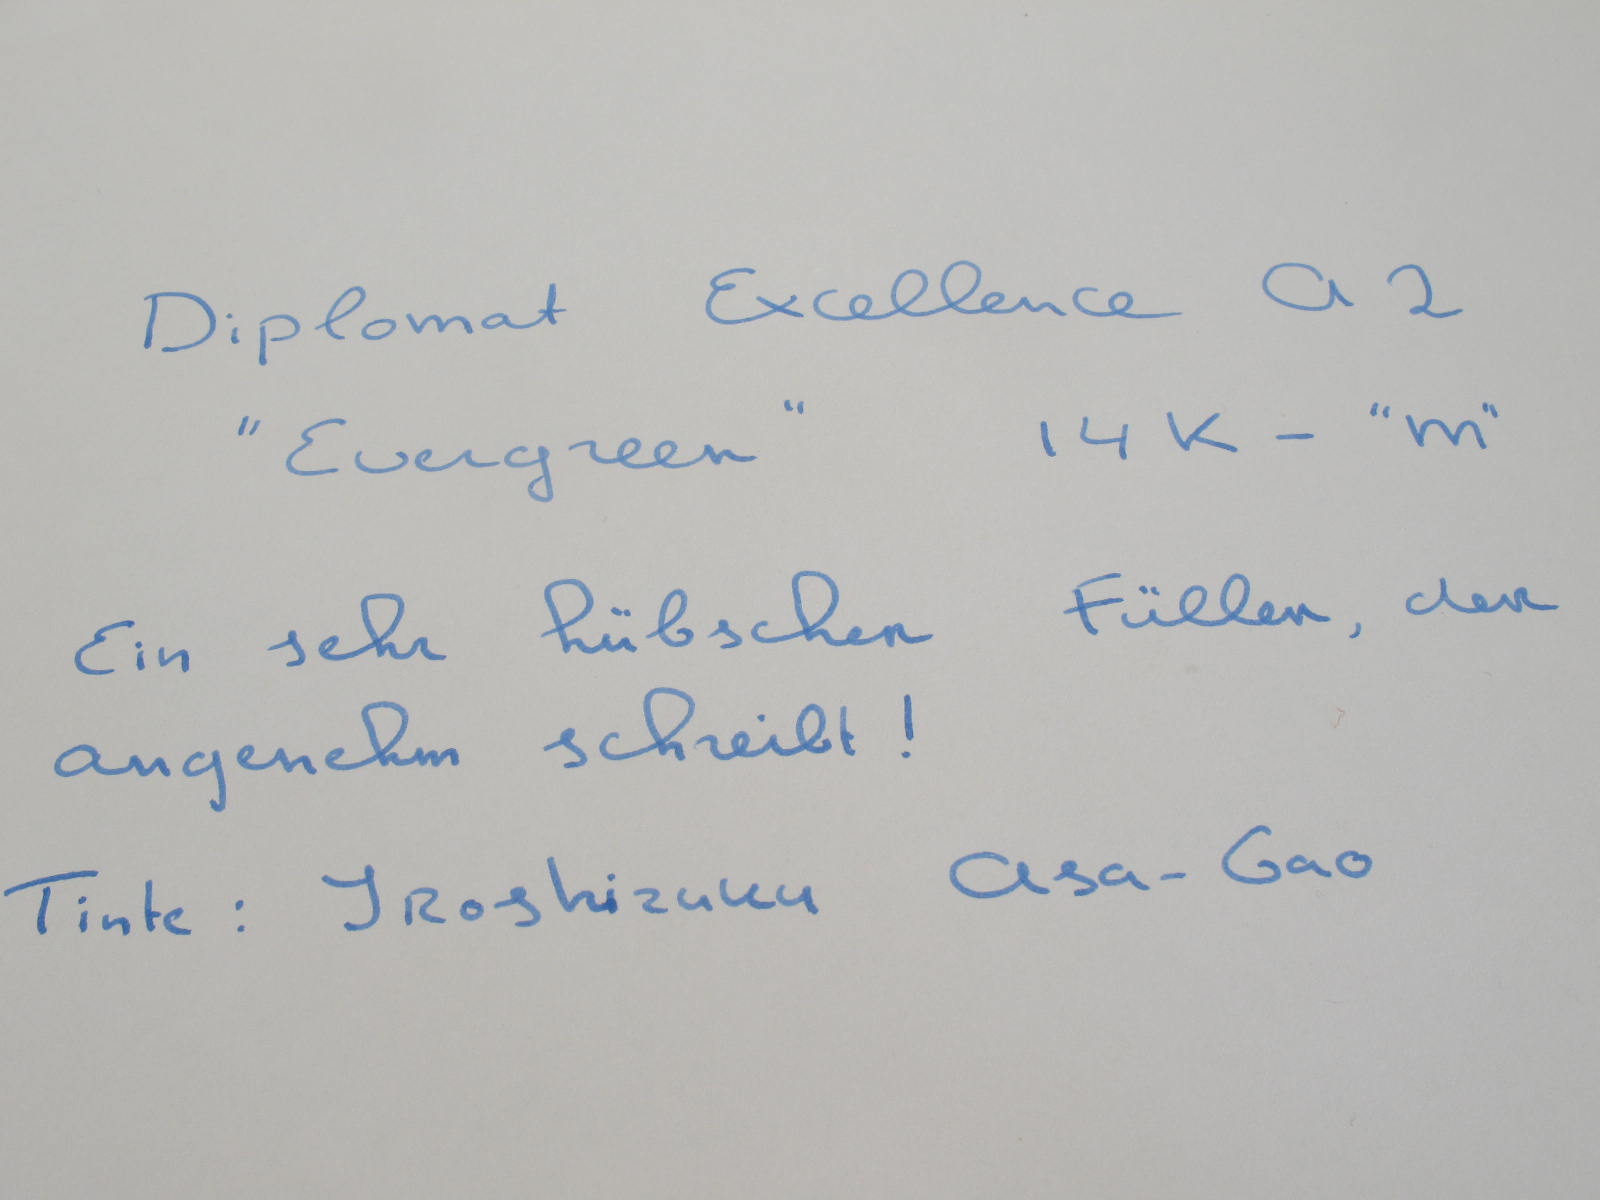 Diplomat Excellence A2
"Evergreen" 14K - "M"
Ein sehr hübscher Füller, der
angenehm schreibt!
Tinte: Iroshizuku Asa-Gao